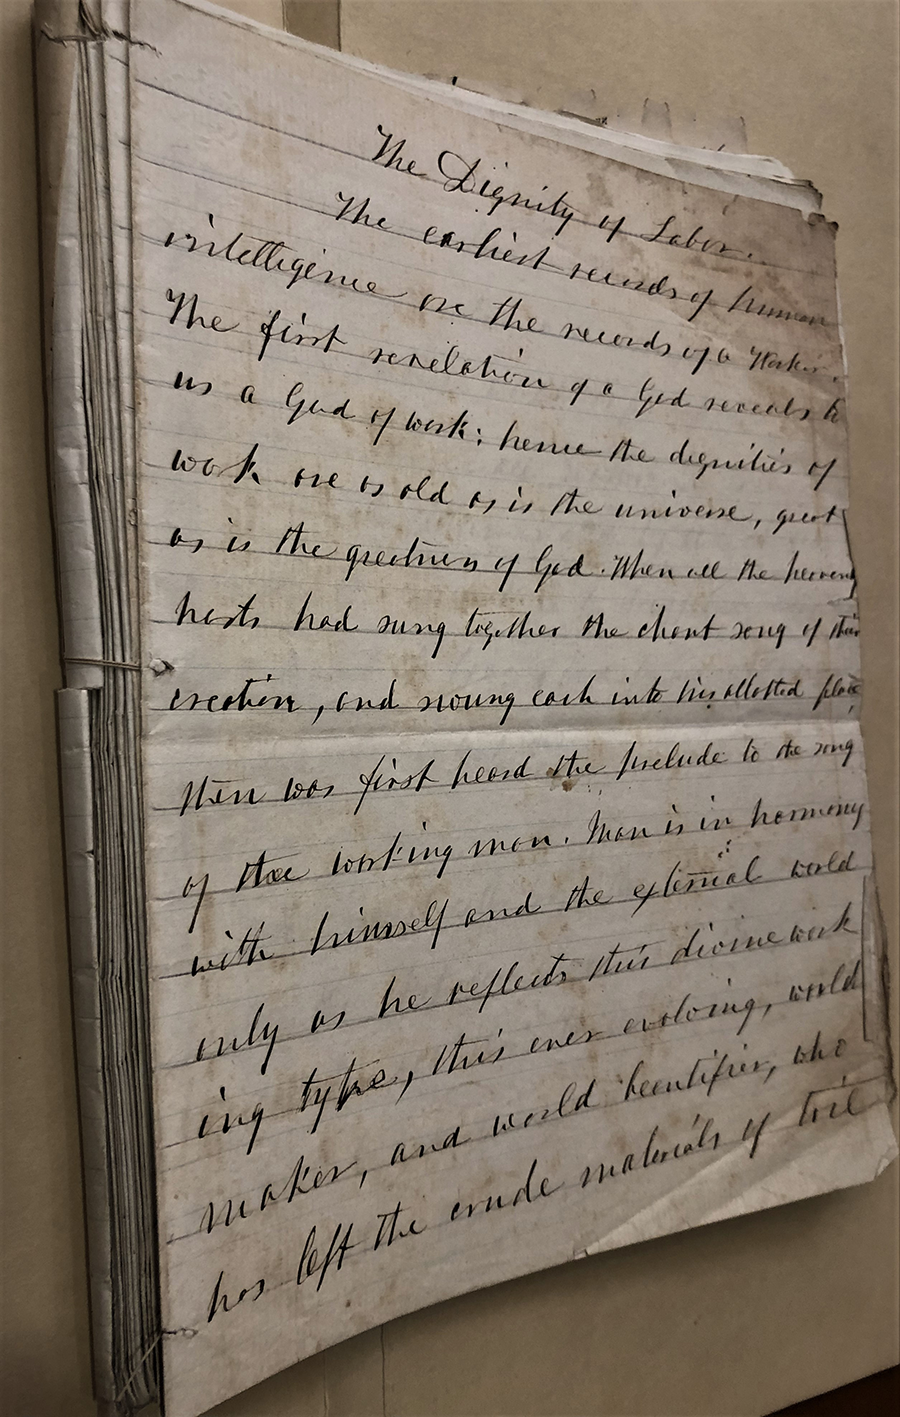 The Dignity of Labor.
The earliest records of human
intelligence are the records of a Worker.
The first revelation of a God reveals to
us a God of work; hence the dignities of
work are as old as is the universe, great
as is the greatness of God. When all the heavenly
hosts had sung together the chant song of their
creation, and swung each into his allotted place,
then was first heard the prelude to the song
of the working man. Man is in harmony
with himself and the external world
only as he reflects this divine work
ing type, this ever evolving, world
maker, and world beautifier, who
has left the crude materials of toil